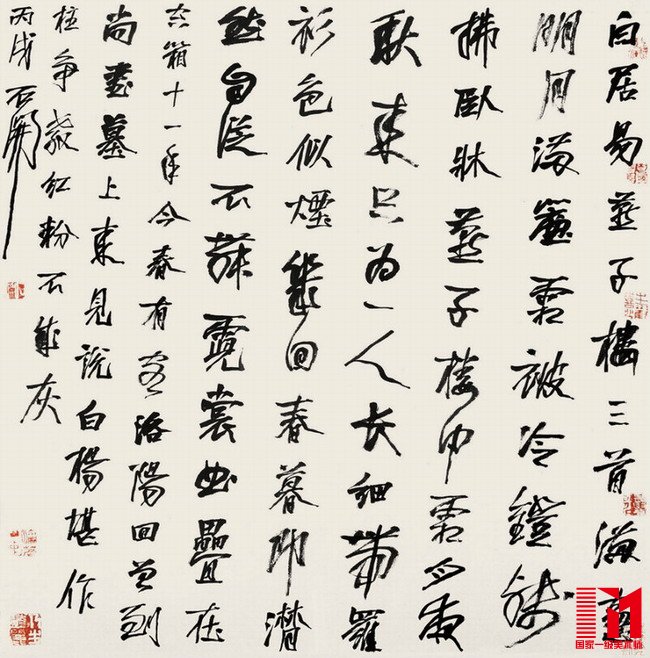 白居易燕子樓三首滿窗
明月滿簾霜被冷鐙殘
拂臥牀燕子楼中霜月夜
秋来只为一人长鈿帶羅
衫色似煙幾回春暮即潸
然自從不舞霓裳曲疊在
空箱十一年今春有客洛陽回曾到
尚書墓上来見説白楊堪作
柱争教红粉不能灰
丙戌
国家一级美术师